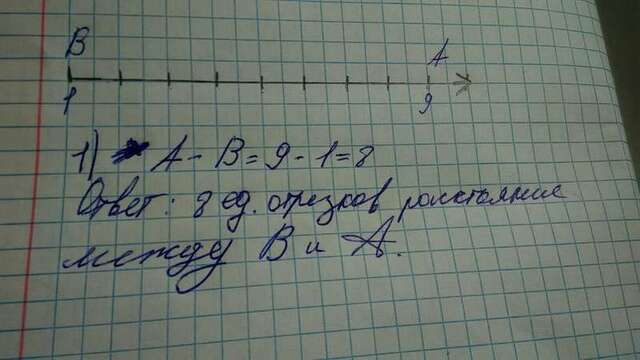 В А
1 9
1) А - В = 9 - 1 = 8
Ответ: 8 ед. отрезков расстояние
между В и А.